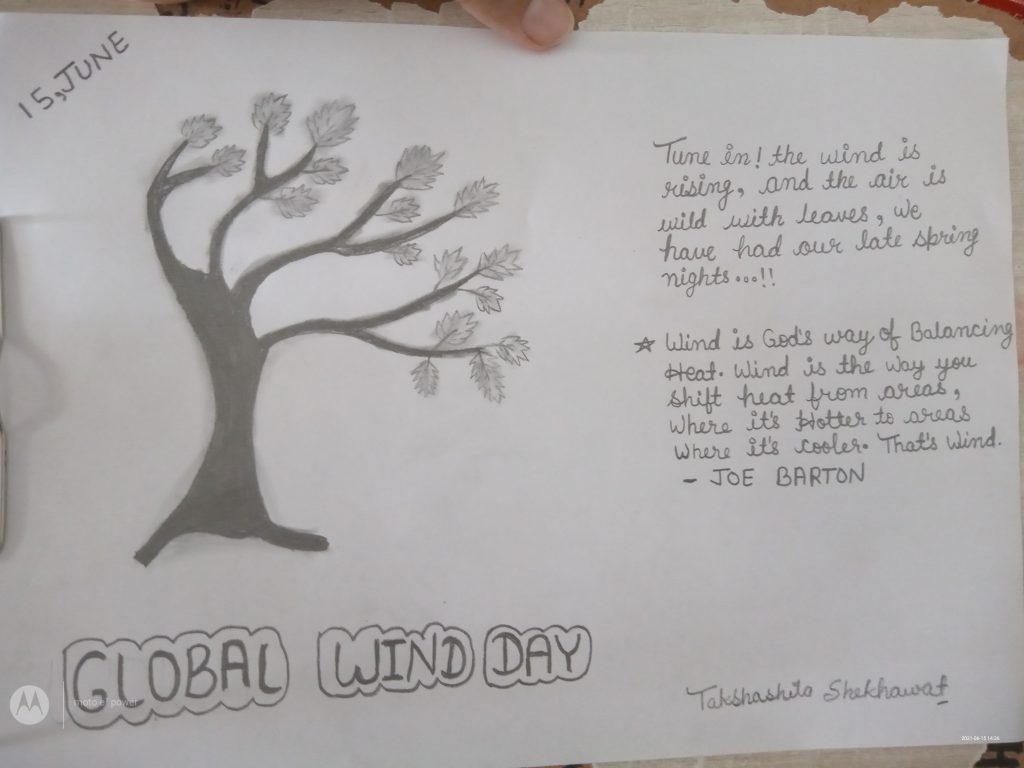 15,JUNE
Tune in! the wind is
rising, and the air is
wild with leaves, we
have had our late spring
nights...!!
☆ Wind is God's way of Balancing
Heat. Wind is the way you
shift heat from areas,
Where it's Hotter to areas
Where it's cooler. That's Wind.
- JOE BARTON
GLOBAL WIND DAY
Takshashila Shekhawat
moto e⁷ power
2021-06-15 14:26